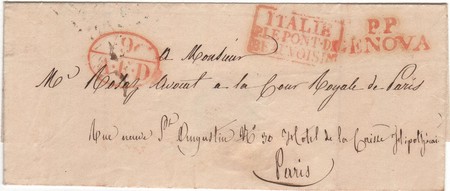 ITALIE
P.LE PONT-DE
BEAUVOISIN
P.P
GENOVA
A Monsieur
Mr avocat à la Cour Royale de Paris
Rue neuve St Augustin No 30 Hotel de la Caisse
Paris